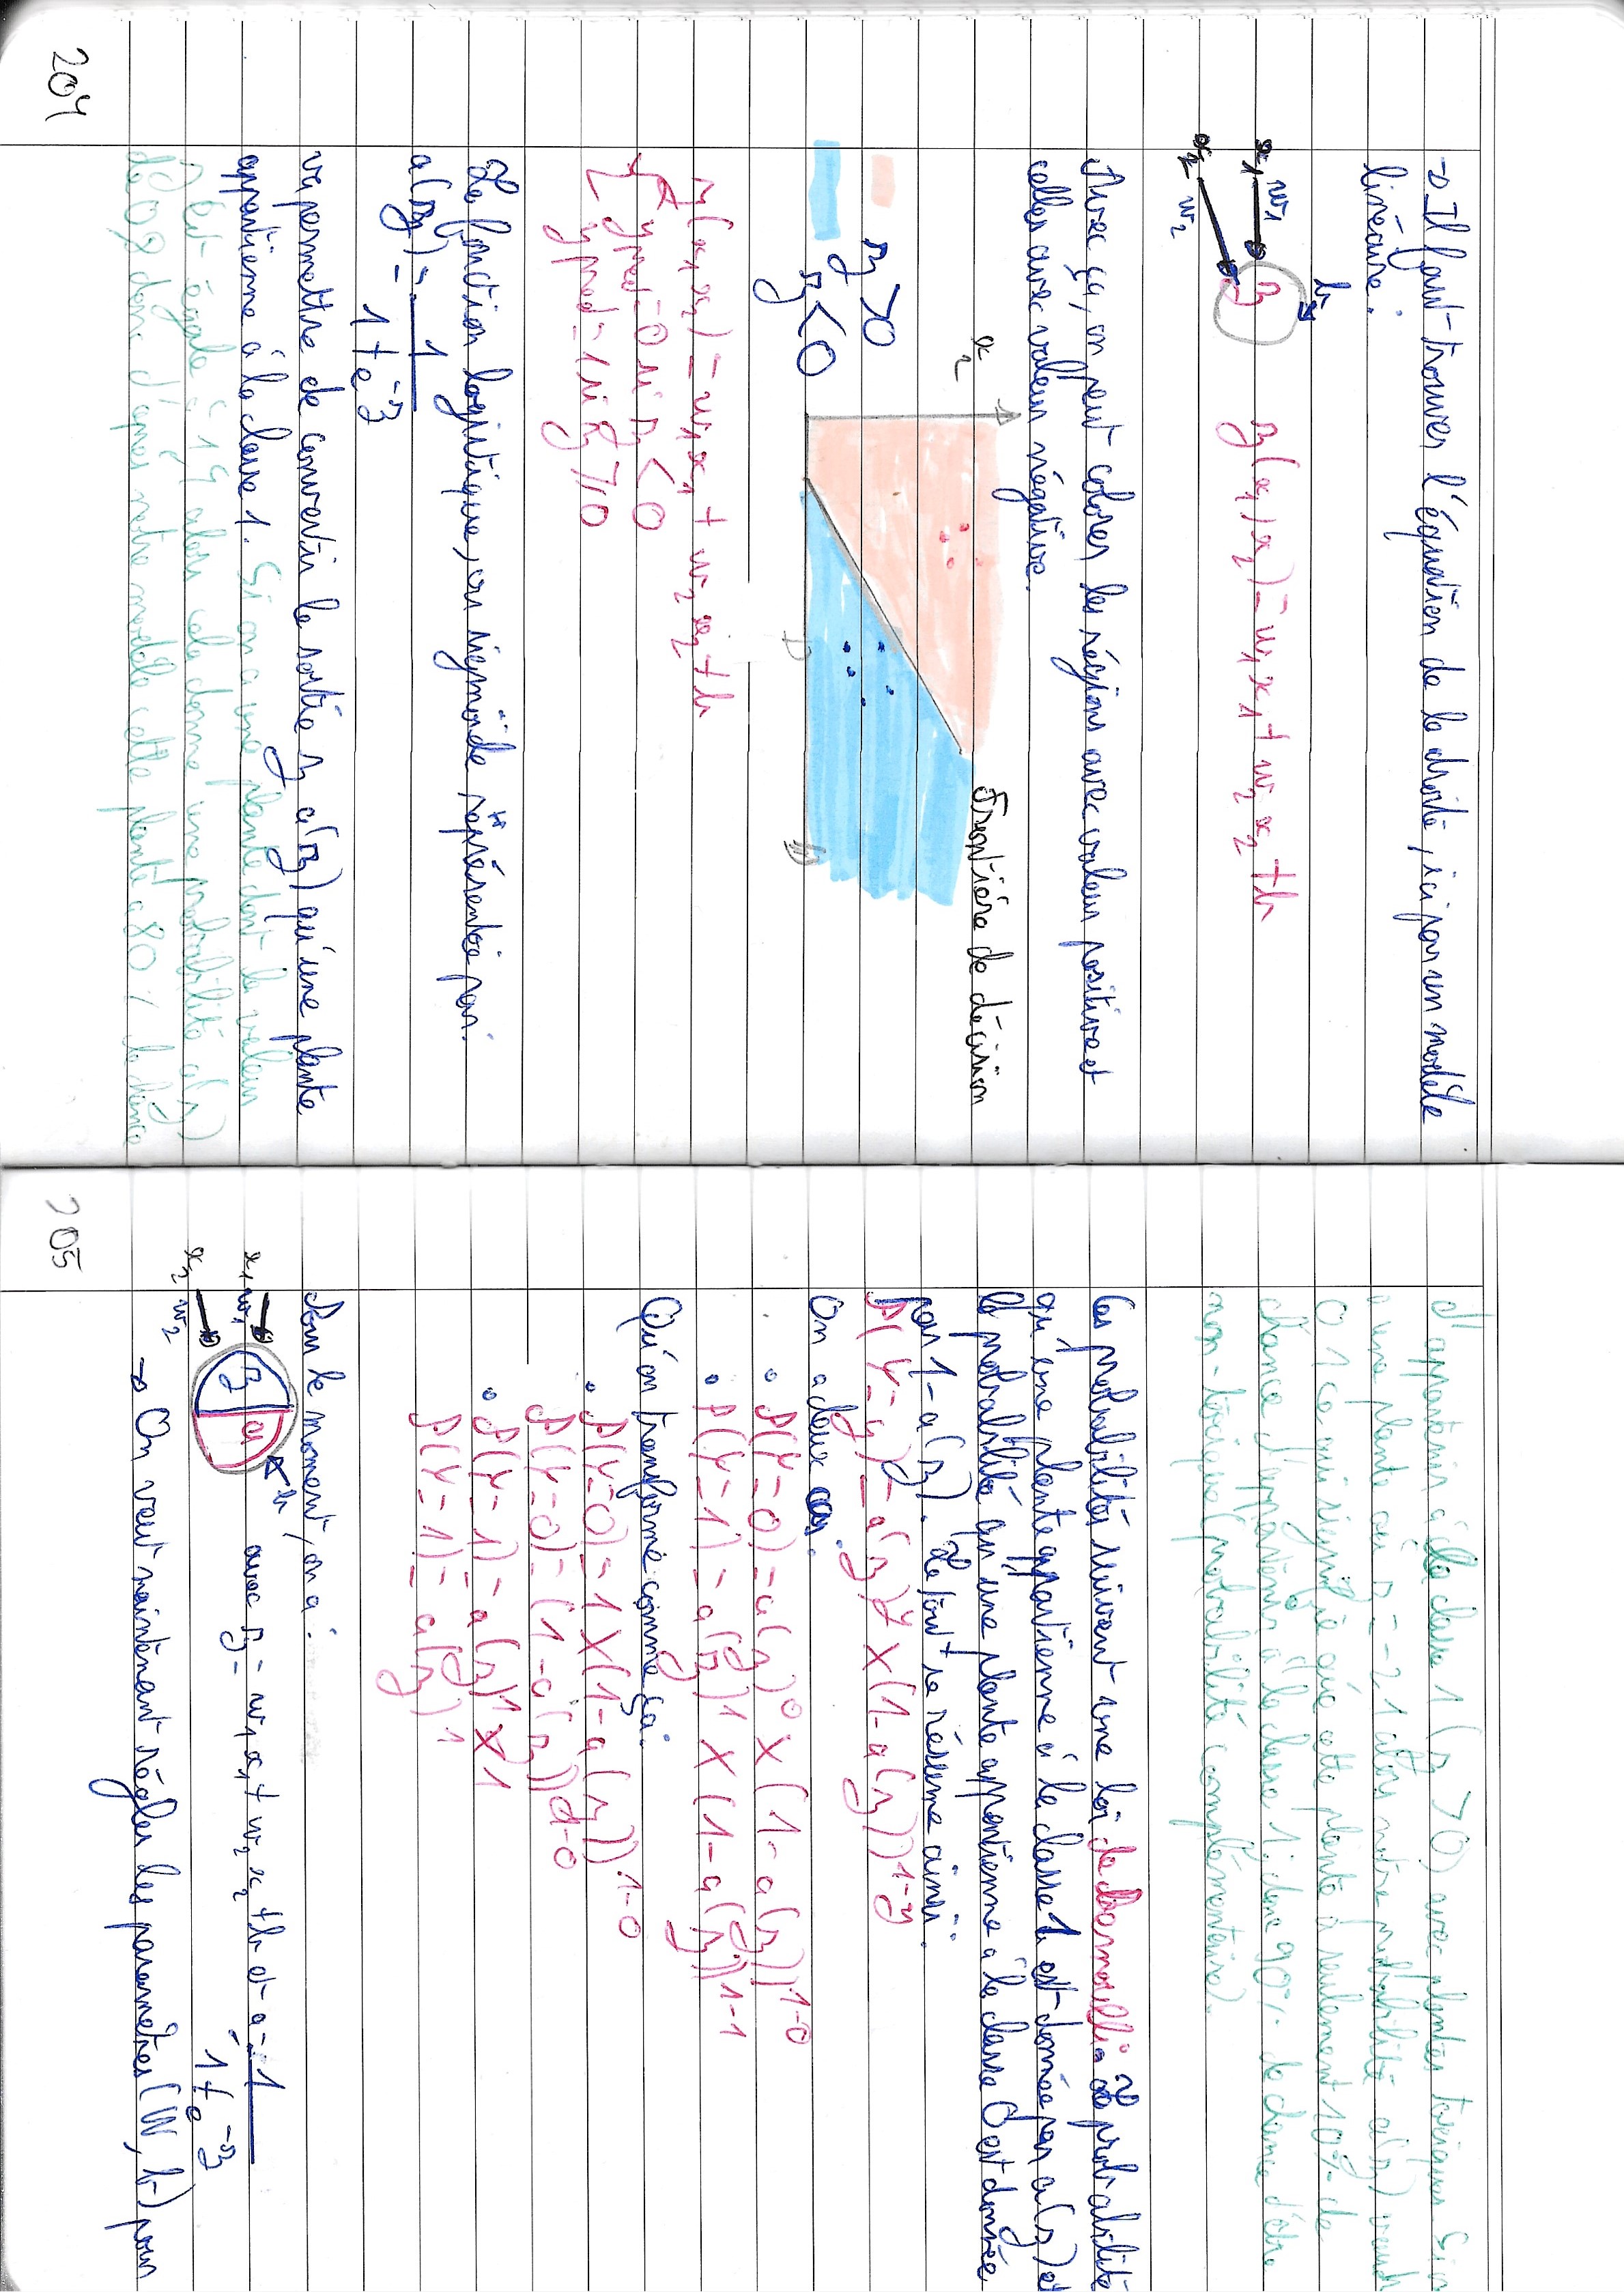 → Il faut trouver l'équation de la droite, ici pour un modèle
linéaire.
x1 w1 b
z z(x1, x2) = w1 x1 + w2 x2 + b
x2 w2
Avec ça, on peut colorer les régions avec valeur positive et
celles avec valeur négative.
x2
Frontière de décision
z > 0
z < 0
z(x1 x2) = w1 x1 + w2 x2 + b
y pred = 0 si z < 0
y pred = 1 si z ⩾ 0
La fonction logistique, ou sigmoïde représentée par:
a(z) = 1
1 + e^-z
va permettre de convertir la sortie z a(z) qu'une plante
appartienne à la classe 1. Si on a une plante dont la valeur
z est égale à 1,4 alors cela donne une probabilité a(z)
de 0,8 donc d'après notre modèle cette plante a 80% de chance
204
d'appartenir à la classe 1 (z > 0) avec plantes toxiques. Si on
a une plante où z = -2,1 alors notre probabilité a(z) vaut
0,1 ce qui signifie que cette plante a seulement 10% de
chance d'appartenir à la classe 1: donc 90% de chance d'être
non-toxique (probabilité complémentaire).
Ces probabilités suivent une loi de Bernoulli. La probabilité
qu'une plante appartienne à la classe 1 est donnée par a(z) et
la probabilité qu'une plante appartienne à la classe 0 est donnée
par 1 - a(z). Le tout se résume ainsi:
P(Y = y) = a(z)^y X (1 - a(z))^1-y
On a deux cas.
• P(Y = 0) = a(z)^0 X (1 - a(z))^1-0
• P(Y = 1) = a(z)^1 X (1 - a(z))^1-1
Qu'on transforme comme ça:
• P(Y = 0) = 1 X (1 - a(z))^1-0
P(Y = 0) = (1 - a(z))^1-0
• P(Y = 1) = a(z)^1 X 1
P(Y = 1) = a(z)^1
Pour le moment, on a:
x1 w1 z a b avec z = w1 x1 + w2 x2 + b et a = 1
x2 w2 1 + e^-z
→ On veut maintenant régler les paramètres (W, b) pour
205